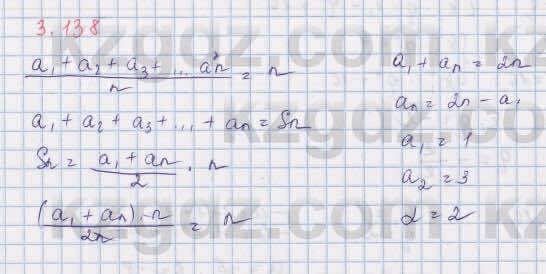 3.138
a₁ + a₂ + a₃ + ... aₙ / n = n
a₁ + a₂ + a₃ + ... + aₙ = Sₙ
Sₙ = (a₁ + aₙ / 2) · n
(a₁ + aₙ) · n / 2n = n
a₁ + aₙ = 2n
aₙ = 2n - a₁
a₁ = 1
a₂ = 3
d = 2
kzgaz.com
kzgaz.com
kzgaz.com